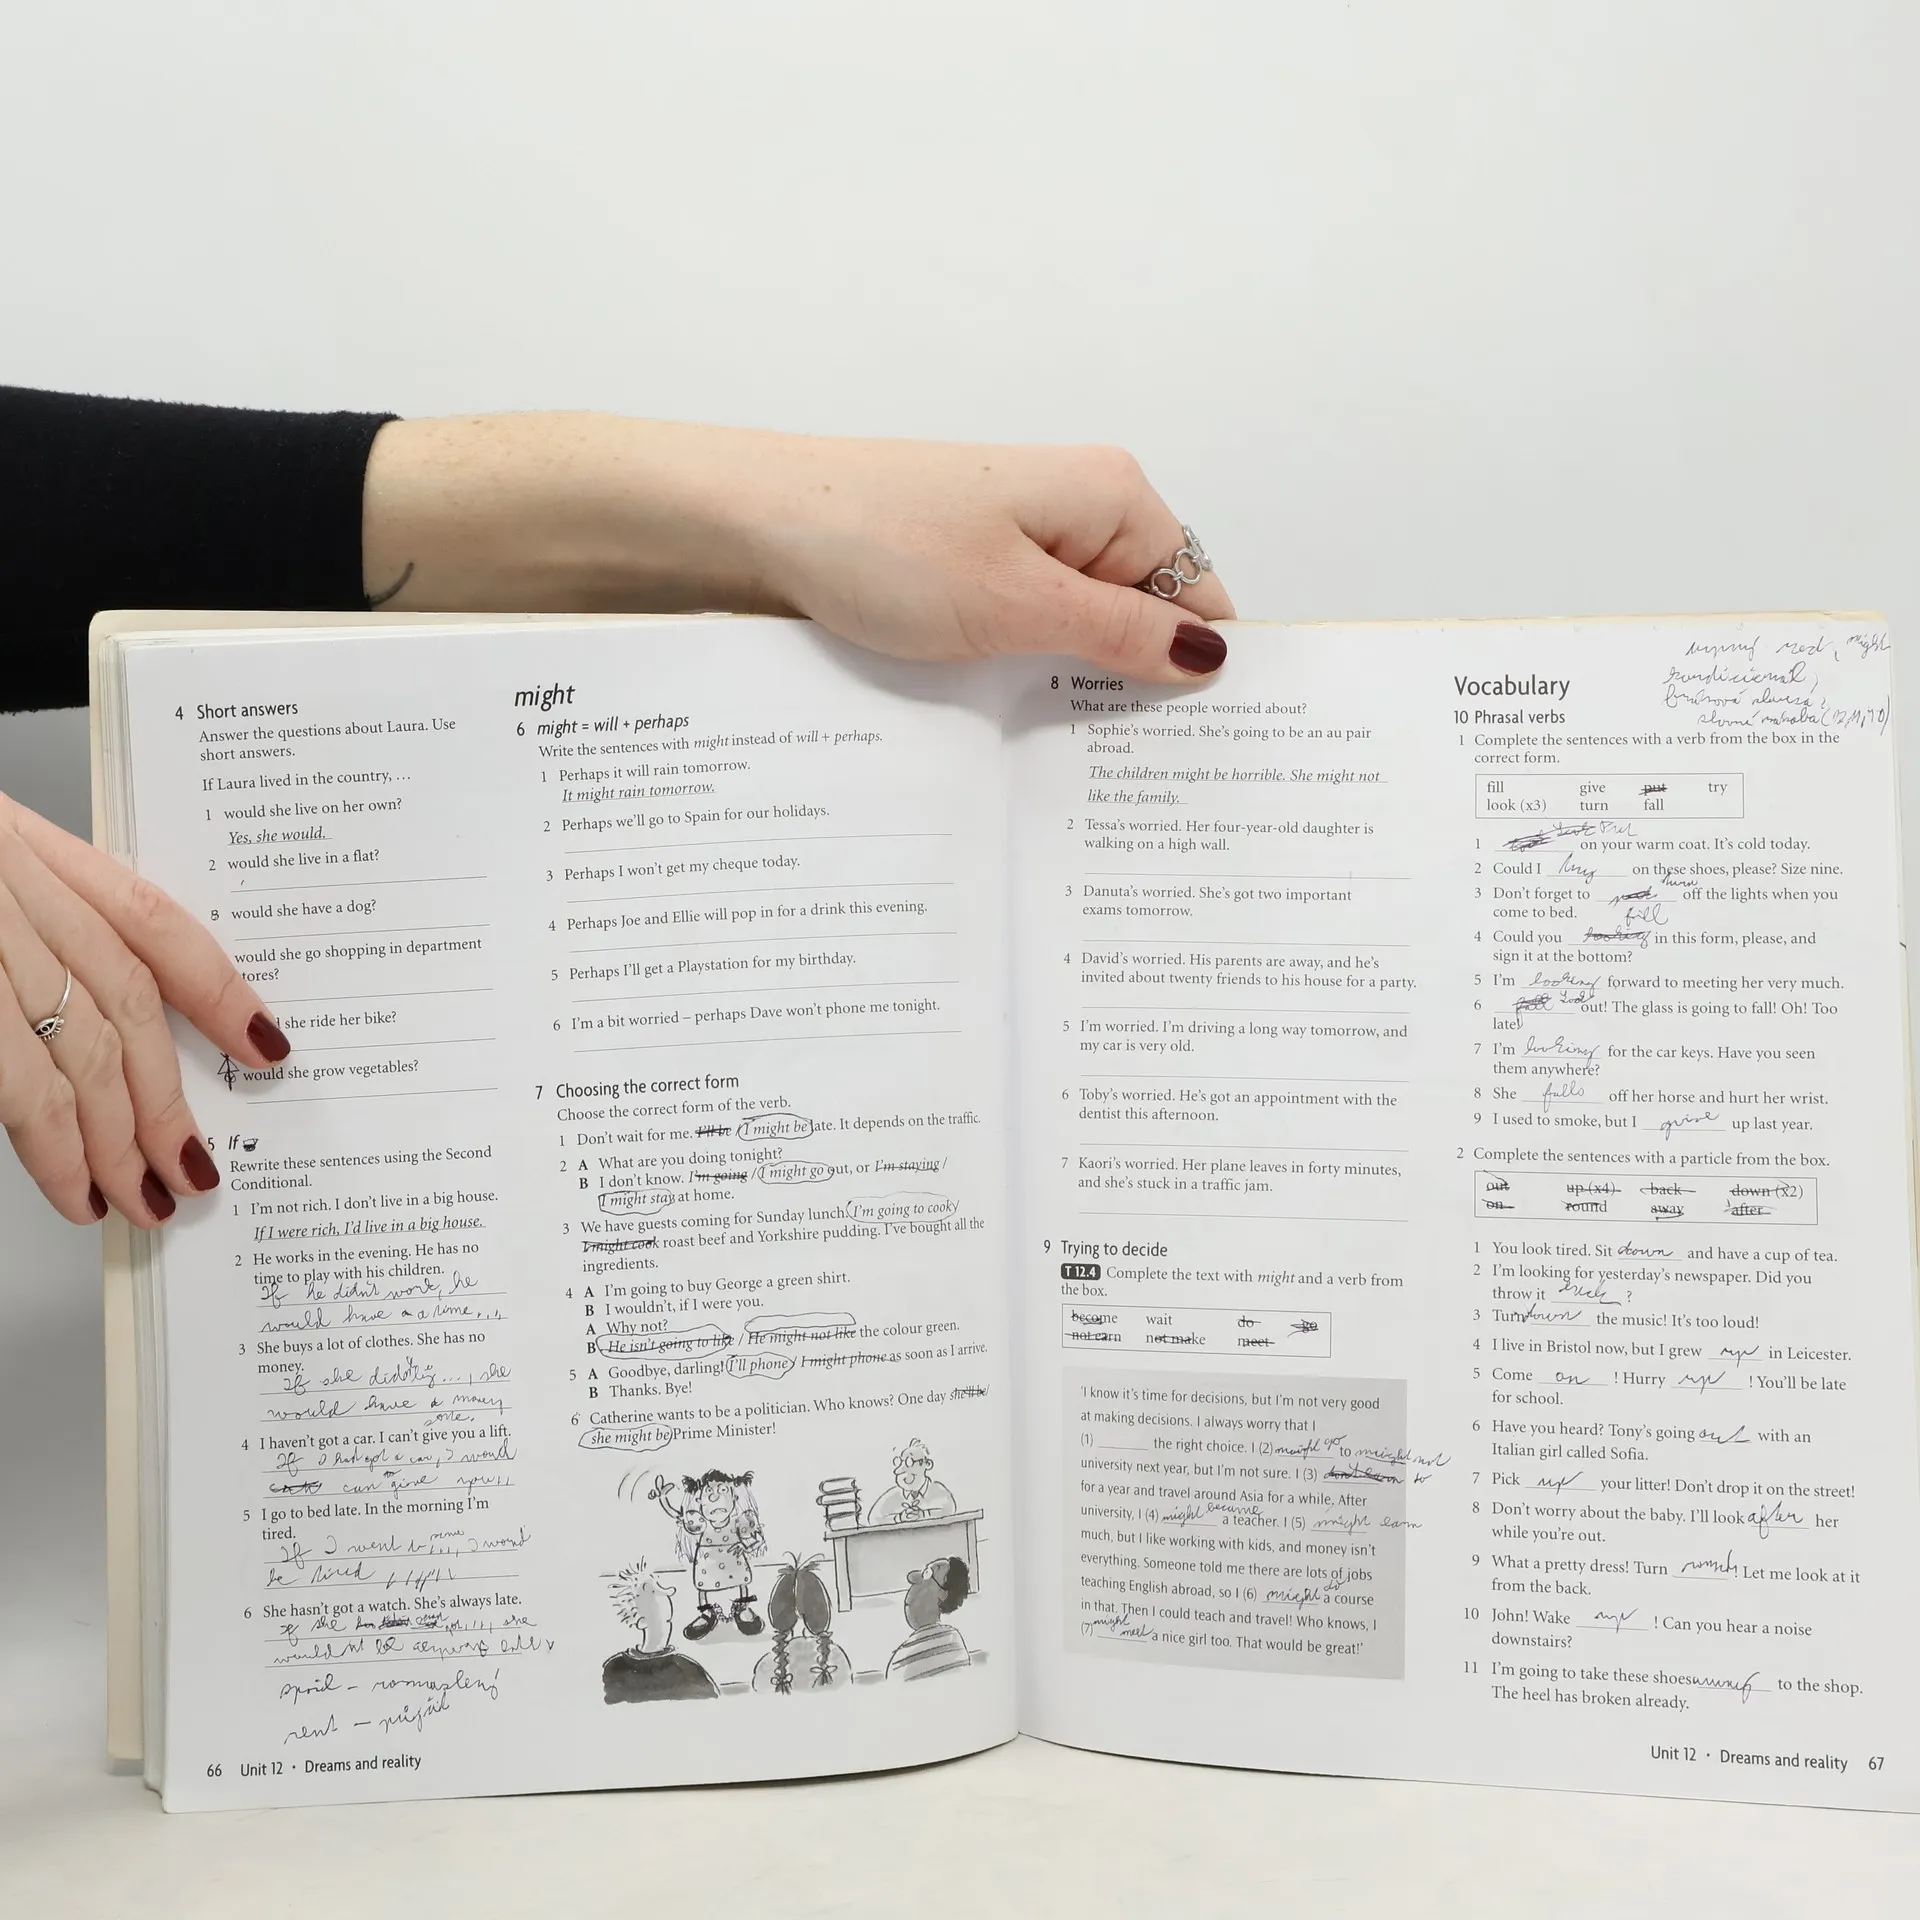 4 Short answers
Answer the questions about Laura. Use
short answers.
If Laura lived in the country, …
1 would she live on her own?
Yes, she would.
2 would she live in a flat?
3 would she have a dog?
would she go shopping in department
tores?
she ride her bike?
would she grow vegetables?
5 If
Rewrite these sentences using the Second
Conditional.
1 I'm not rich. I don't live in a big house.
If I were rich, I'd live in a big house.
2 He works in the evening. He has no
time to play with his children.
If he didn't work, he
would have a time...
3 She buys a lot of clothes. She has no
money.
If she didn't ..., she
would have a money
some.
4 I haven't got a car. I can't give you a lift.
If I had got a car, I would
can give you
5 I go to bed late. In the morning I'm
tired.
If I went to, I would
be tired
6 She hasn't got a watch. She's always late.
If she she
wouldn't be
rent –
66 Unit 12 • Dreams and reality
might
6 might = will + perhaps
Write the sentences with might instead of will + perhaps.
1 Perhaps it will rain tomorrow.
It might rain tomorrow.
2 Perhaps we'll go to Spain for our holidays.
3 Perhaps I won't get my cheque today.
4 Perhaps Joe and Ellie will pop in for a drink this evening.
5 Perhaps I'll get a Playstation for my birthday.
6 I'm a bit worried – perhaps Dave won't phone me tonight.
7 Choosing the correct form
Choose the correct form of the verb.
1 Don't wait for me. I'll be / I might be late. It depends on the traffic.
2 A What are you doing tonight?
B I don't know. I'm going / I might go out, or I'm staying /
I might stay at home.
3 We have guests coming for Sunday lunch. I'm going to cook /
I might cook roast beef and Yorkshire pudding. I've bought all the
ingredients.
4 A I'm going to buy George a green shirt.
B I wouldn't, if I were you.
A Why not?
B He isn't going to like / He might not like the colour green.
5 A Goodbye, darling! I'll phone / I might phone as soon as I arrive.
B Thanks. Bye!
6 Catherine wants to be a politician. Who knows? One day she'll be /
she might be Prime Minister!
8 Worries
What are these people worried about?
1 Sophie's worried. She's going to be an au pair
abroad.
The children might be horrible. She might not
like the family.
2 Tessa's worried. Her four-year-old daughter is
walking on a high wall.
3 Danuta's worried. She's got two important
exams tomorrow.
4 David's worried. His parents are away, and he's
invited about twenty friends to his house for a party.
5 I'm worried. I'm driving a long way tomorrow, and
my car is very old.
6 Toby's worried. He's got an appointment with the
dentist this afternoon.
7 Kaori's worried. Her plane leaves in forty minutes,
and she's stuck in a traffic jam.
9 Trying to decide
T 12.4 Complete the text with might and a verb from
the box.
become wait do go
not earn not make meet
'I know it's time for decisions, but I'm not very good
at making decisions. I always worry that I
(1) the right choice. I (2) might go to might not
university next year, but I'm not sure. I (3) don't learn to
for a year and travel around Asia for a while. After
university, I (4) might become a teacher. I (5) might earn
much, but I like working with kids, and money isn't
everything. Someone told me there are lots of jobs
teaching English abroad, so I (6) might do a course
in that. Then I could teach and travel! Who knows, I
(7) might meet a nice girl too. That would be great!'
might
Vocabulary
10 Phrasal verbs
1 Complete the sentences with a verb from the box in the
correct form.
fill give put try
look (x3) turn fall
1 Put on your warm coat. It's cold today.
2 Could I on these shoes, please? Size nine.
3 Don't forget to turn off the lights when you
come to bed.
4 Could you fill in this form, please, and
sign it at the bottom?
5 I'm looking forward to meeting her very much.
6 Look out! The glass is going to fall! Oh! Too
late!
7 I'm looking for the car keys. Have you seen
them anywhere?
8 She falls off her horse and hurt her wrist.
9 I used to smoke, but I give up last year.
2 Complete the sentences with a particle from the box.
out up (x4) back down (x2)
on round away after
1 You look tired. Sit down and have a cup of tea.
2 I'm looking for yesterday's newspaper. Did you
throw it ?
3 Turn down the music! It's too loud!
4 I live in Bristol now, but I grew up in Leicester.
5 Come on ! Hurry up ! You'll be late
for school.
6 Have you heard? Tony's going out with an
Italian girl called Sofia.
7 Pick up your litter! Don't drop it on the street!
8 Don't worry about the baby. I'll look after her
while you're out.
9 What a pretty dress! Turn round! Let me look at it
from the back.
10 John! Wake up ! Can you hear a noise
downstairs?
11 I'm going to take these shoes to the shop.
The heel has broken already.
Unit 12 • Dreams and reality 67